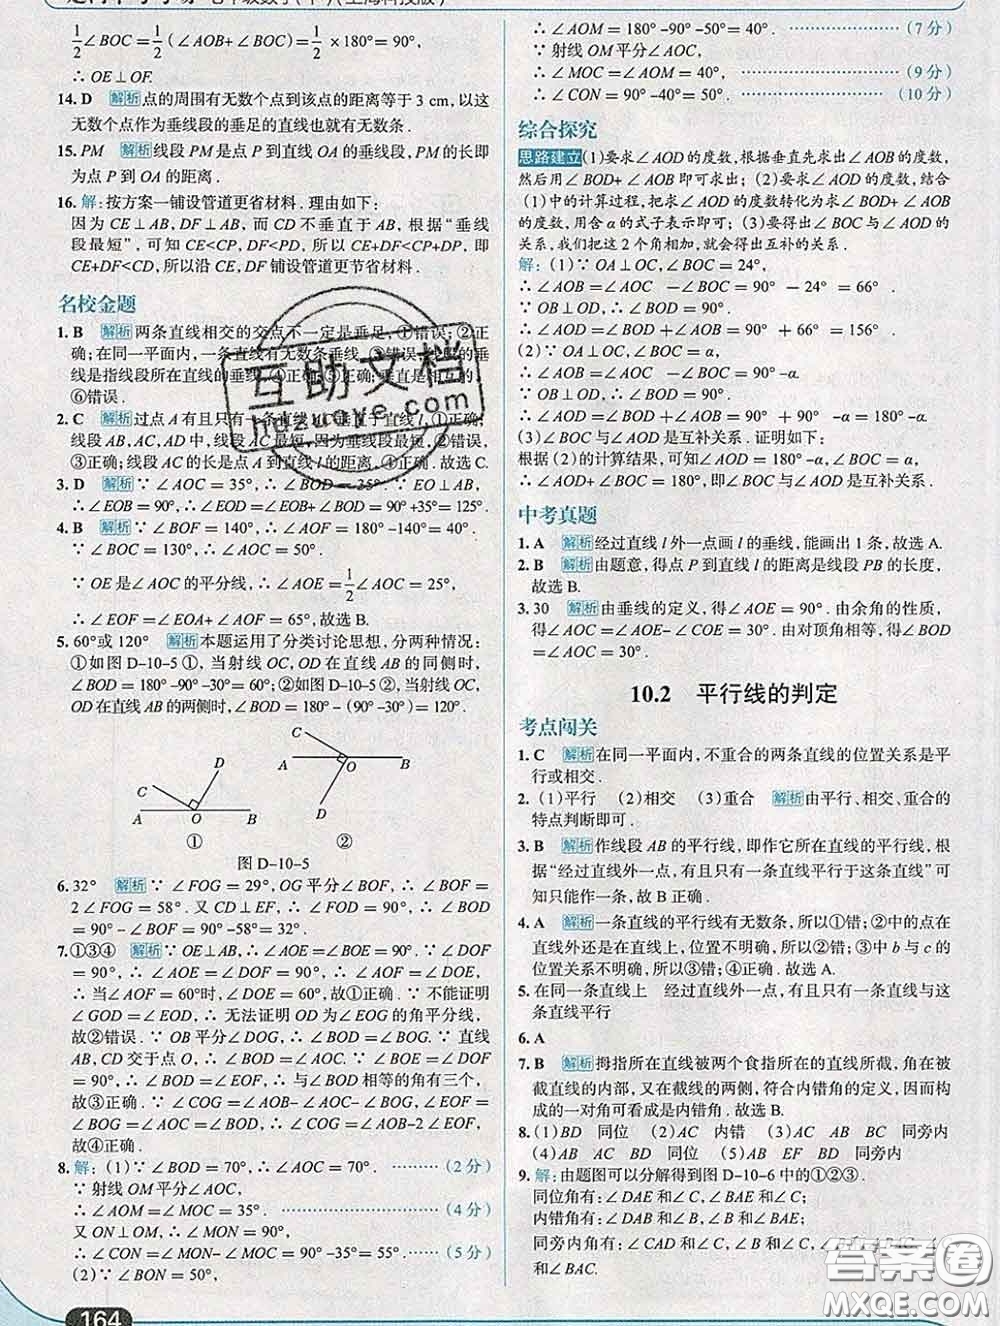 1/2∠BOC=1/2(∠AOB+∠BOC)=1/2×180°=90°,
∴ OE⊥OF.
14. D 解析 点的周围有无数个点到该点的距离等于 3 cm,以这
无数个点作为垂线段的垂足的直线也就有无数条.
15. PM 解析 线段 PM 是点 P 到直线 OA 的垂线段,PM 的长即
为点 P 到 OA 的距离.
16. 解:按方案一铺设管道更省材料.理由如下:
因为 CE⊥AB,DF⊥AB,而 CD 不垂直于 AB,根据“垂线
段最短”,可知 CE<CP,DF<PD,所以 CE+DF<CP+DP,即
CE+DF<CD,所以沿 CE,DF 铺设管道更节省材料.
名校金题
1. B 解析 两条直线相交的交点不一定是垂足,①错误;②正
确;在同一平面内,一条直线有无数条垂线,③错误;线段的垂
线是指线段所在直线的垂线,④正确;⑤正确;垂直是相互的,
⑥错误.
2. C 解析 过点 A 有且只有一条直线 AC 垂直于直线 l,①正确;
线段 AB,AC,AD 中,线段 AC 最短,因为垂线段最短,②错误,
③正确;线段 AC 的长是点 A 到直线 l 的距离,④正确.故选 C.
3. D 解析 ∵ ∠AOC=35°,∴ ∠BOD=35°.∵ EO⊥AB,
∴ ∠EOB=90°,∴ ∠EOD=∠EOB+∠BOD=90°+35°=125°.
4. B 解析 ∵ ∠BOF=140°,∴ ∠AOF=180°-140°=40°.
∵ ∠BOC=130°,∴ ∠AOC=50°.
∵ OE 是∠AOC 的平分线,∴ ∠AOE=1/2∠AOC=25°,
∴ ∠EOF=∠EOA+∠AOF=65°,故选 B.
5. 60°或 120° 解析 本题运用了分类讨论思想,分两种情况:
①如图 D-10-5 ①,当射线 OC,OD 在直线 AB 的同侧时,
∠BOD=180°-90°-30°=60°;②如图 D-10-5 ②,当射线 OC,
OD 在直线 AB 的两侧时,∠BOD=180°-(90°-30°)=120°.
C D A O B ①
C A O B D ②
图 D-10-5
6. 32° 解析 ∵ ∠FOG=29°,OG 平分∠BOF,∴ ∠BOF=
2∠FOG=58°.又 CD⊥EF,∴ ∠FOD=90°,∴ ∠BOD=
90°-∠BOF=90°-58°=32°.
7. ①③④ 解析 ∵ OE⊥AB,∴ ∠AOE=∠BOE=90°.∵ ∠DOF
=90°,∴ ∠AOF+∠AOD=90°=∠AOD+∠DOE,∴ ∠AOF=∠DOE,
∴ 当∠AOF=60°时,∠DOE=60°,故①正确.∵ 不能证明
∠GOD=∠EOD,∴ 无法证明 OD 为∠EOG 的角平分线,
故②错误.∵ OB 平分∠DOG,∴ ∠BOD=∠BOG.∵ 直线
AB,CD 交于点 O,∴ ∠BOD=∠AOC.∵ ∠BOE=∠DOF=
90°,∴ ∠BOD=∠EOF,∴ 与∠BOD 相等的角有三个,
故③正确.∵ ∠COG=∠AOB-∠AOC-∠BOG,∠EOF=
∠BOG=∠AOC=∠BOD,∴ ∠COG=∠AOB-2∠EOF,
故④正确.
8. 解:(1)∵ ∠BOD=70°,∴ ∠AOC=70°. ………(2 分)
∵ 射线 OM 平分∠AOC,
∴ ∠AOM=∠MOC=35°. ………(4 分)
又 ON⊥OM,∴ ∠MON=90°,
∴ ∠CON=∠MON-∠MOC=90°-35°=55°. ……(5 分)
(2)∵ ∠BON=50°,
164
∴ ∠AOM=180°-90°-50°=40°. ………(7 分)
∵ 射线 OM 平分∠AOC,
∴ ∠MOC=∠AOM=40°, ………(9 分)
∴ ∠CON=90°-40°=50°. ………(10 分)
综合探究
思路建立 (1)要求∠AOD 的度数,根据垂直先求出∠AOB 的度数,
然后用∠BOD+∠AOB 即可求出;(2)要求∠AOD 的度数,结合
(1)中的计算过程,把求∠AOD 的度数转化为求∠BOD+∠AOB
的度数,用含 α 的式子表示即可;(3)要求出∠BOC 与∠AOD 的
关系,我们把这 2 个角相加,就会得出互补的关系.
解:(1)∵ OA⊥OC,∠BOC=24°,
∴ ∠AOB=∠AOC -∠BOC=90° -24°=66°.
∵ OB⊥OD,∴ ∠BOD=90°.
∴ ∠AOD=∠BOD+∠AOB=90°+66°=156°.
(2)∵ OA⊥OC,∠BOC=α,
∴ ∠AOB=∠AOC -∠BOC=90°-α.
∵ OB⊥OD,∴ ∠BOD=90°.
∴ ∠AOD=∠BOD+∠AOB=90°+90° -α=180°-α.
(3)∠BOC 与∠AOD 是互补关系.证明如下:
根据(2)的计算结果,可知∠AOD=180°-α,∠BOC=α,
∴ ∠AOD+∠BOC=180°,即∠BOC 与∠AOD 是互补关系.
中考真题
1. A 解析 经过直线 l 外一点画 l 的垂线,能画出 1 条,故选 A.
2. B 解析 由题意,得点 P 到直线 l 的距离是线段 PB 的长度,
故选 B.
3. 30 解析 由垂线的定义,得∠AOE=90°.由余角的性质,
得∠AOC=∠AOE-∠COE=30°.由对顶角相等,得∠BOD
=∠AOC=30°.
10.2 平行线的判定
考点闯关
1. C 解析 在同一平面内,不重合的两条直线的位置关系是平
行或相交.
2. (1)平行 (2)相交 (3)重合 解析 由平行、相交、重合的
特点判断即可.
3. B 解析 作线段 AB 的平行线,即作它所在直线的平行线,根
据“经过直线外一点,有且只有一条直线平行于这条直线”可
知只能作一条,故 B 正确.
4. A 解析 一条直线的平行线有无数条,所以①错;②中的点在
直线外还是在直线上,位置不明确,所以②错;③中 b 与 c 的
位置关系不明确,所以③错;④正确.故选 A.
5. 在同一条直线上 经过直线外一点,有且只有一条直线与这
条直线平行
6. A
7. B 解析 拇指所在直线被两个食指所在的直线所截,角在被
截直线的内部,又在截线的两侧,符合内错角的定义,因而构
成的一对角可看成是内错角.故选 B.
8. (1)BD 同位 (2)AC 内错 (3)AC AB BC 同旁内
(4)AB AC BD 同位 (5)AB EF BD 同旁内
9. 解:由题图可以分解得到图 D-10-6 中的①②③.
同位角有:∠DAE 和∠C,∠BAE 和∠C;
内错角有:∠DAB 和∠B,∠B 和∠BAE;
同旁内角有:∠CAD 和∠C,∠B 和∠C,∠BAC 和∠C,∠B
和∠BAC.
互助文档
hdzuoye.com
答案圈
MXQE.COM